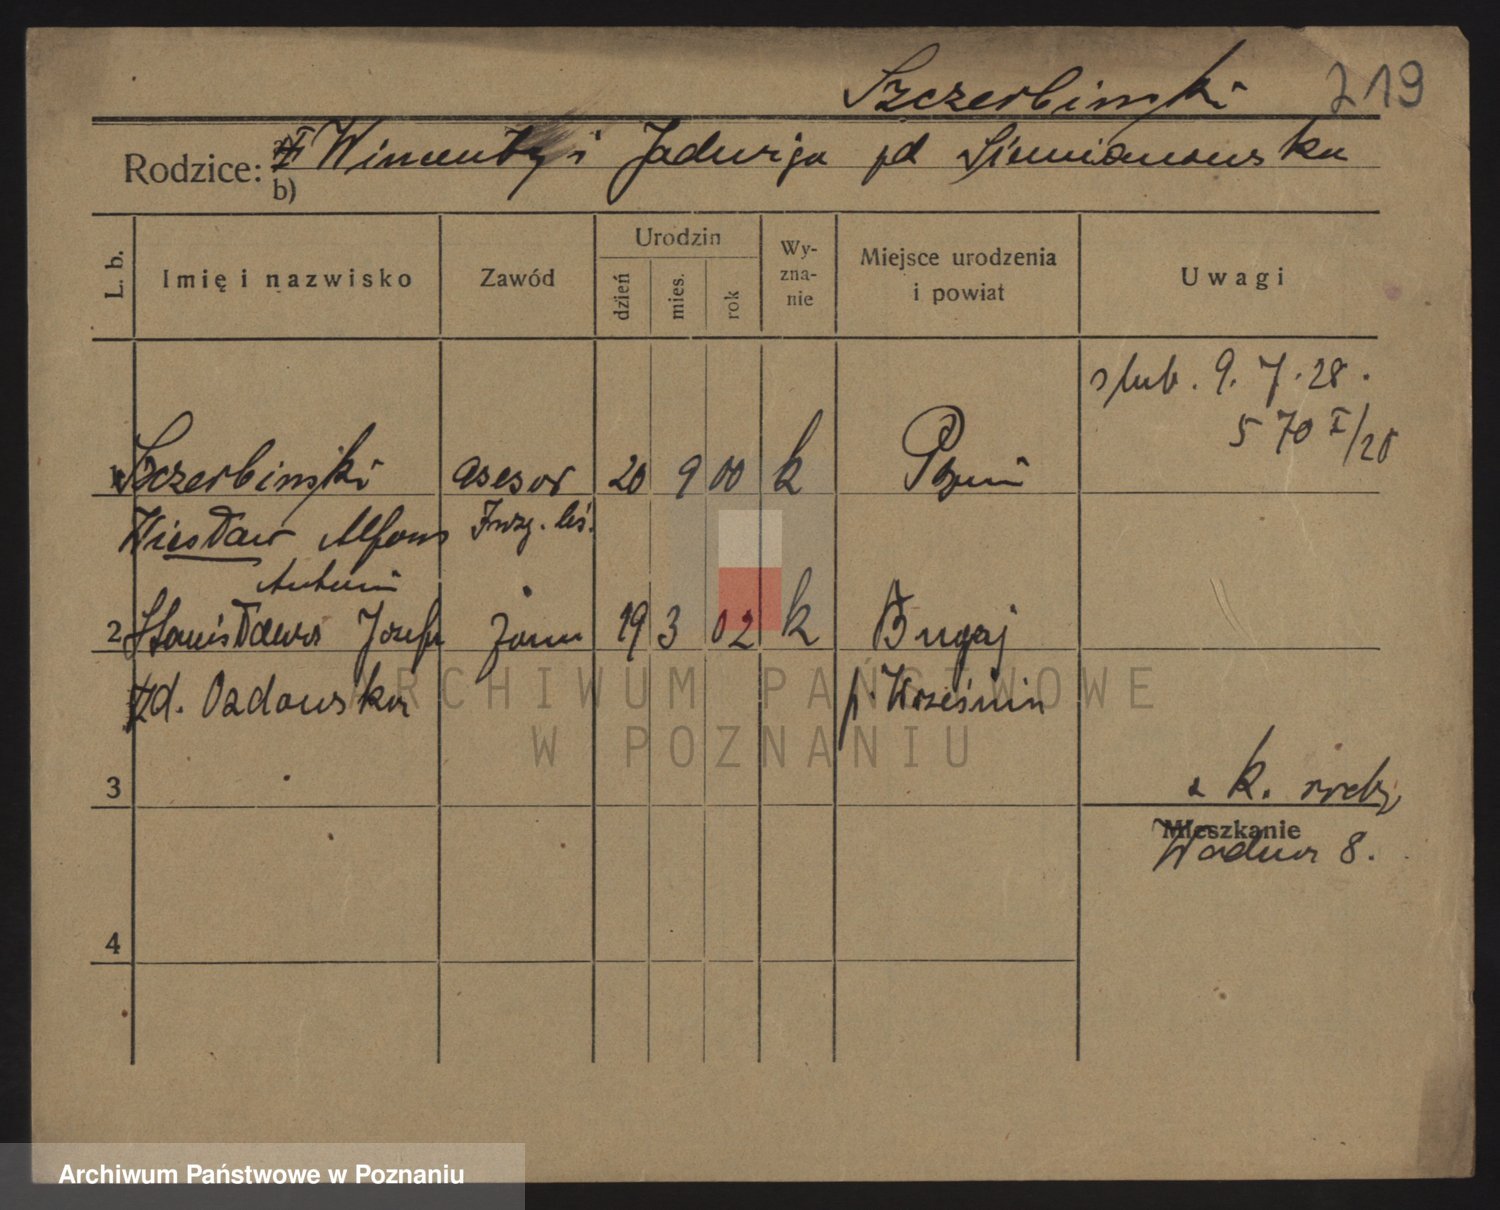 Szczerbiński 219
Rodzice: a) I Wincenty i Jadwiga zd Siemianowska
b)
L. b. Imię i nazwisko Zawód Urodzin dzień mies. rok Wy-zna-nie Miejsce urodzenia i powiat Uwagi
ślub. 9. 7. 28.
570 I/28
1 Szczerbiński asesor 20 9 00 k Pozn
Wiesław Alfons
Antoni
2 Stanisława Józefa żona 19 3 02 k Bugaj
zd. Ozdowska p. Września
ARCHIWUM PAŃSTWOWE
W POZNANIU
3
z k.
Mieszkanie
8.
4
Archiwum Państwowe w Poznaniu